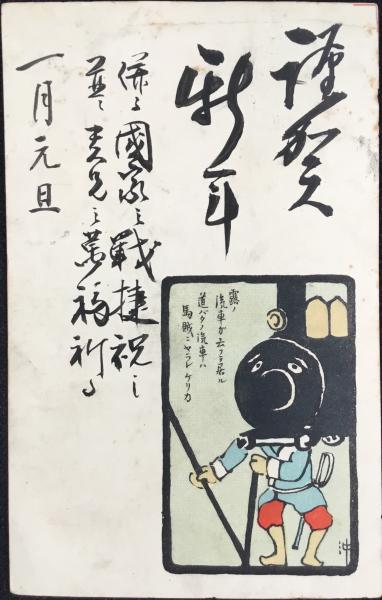 謹賀
新年
國家之戰捷祝シ
貴兄之萬福祈る
一月元旦
露ノ
汽車ガ云フテ居ル
道バタノ汽車ハ
馬賊ニヤラレケリカ